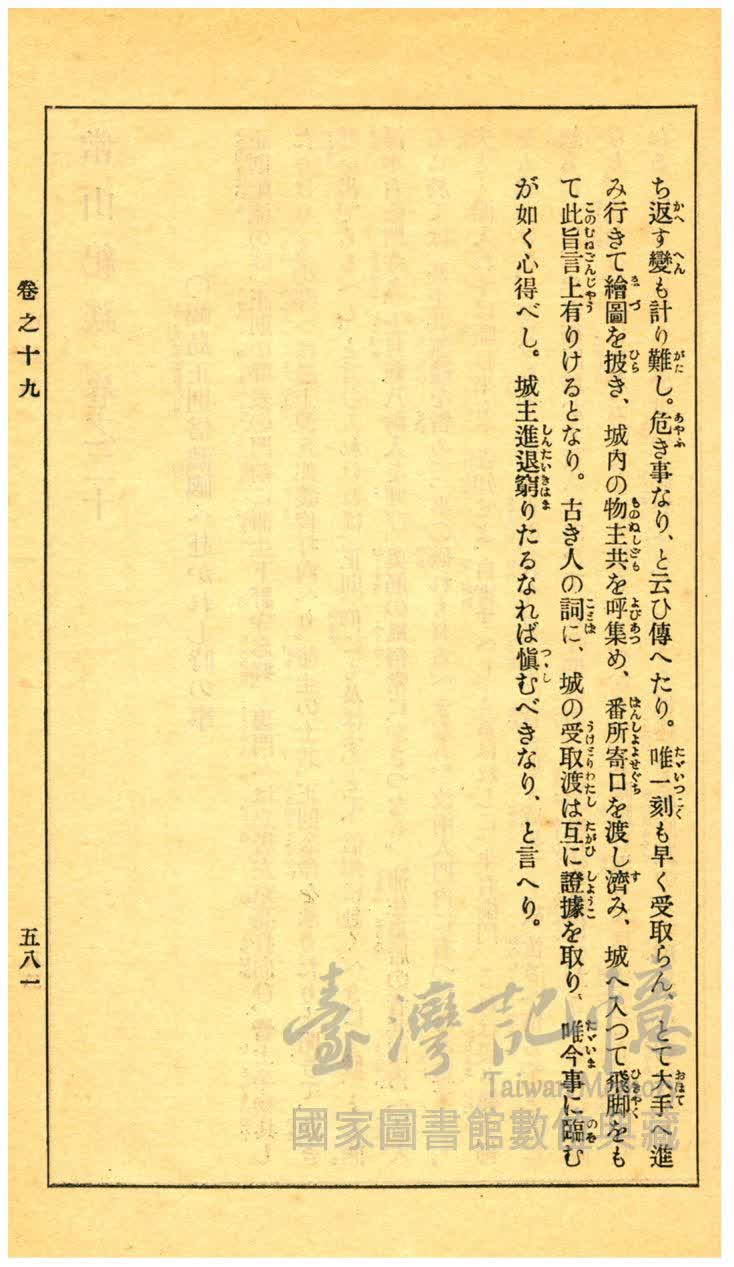 ち返す變も計り難し。危き事なり、と云ひ傳へたり。唯一刻も早く受取らん、とて大手へ進
み行きて繪圖を披き、城内の物主共を呼集め、番所寄口を渡し濟み、城へ入つて飛脚をも
て此旨言上有りけるとなり。古き人の詞に、城の受取渡は互に證據を取り、唯今事に臨む
が如く心得べし。城主進退窮りたるなれば愼むべきなり、と言へり。
卷之十九
五八一
臺灣記憶
Taiwan Memory
國家圖書館數位典藏